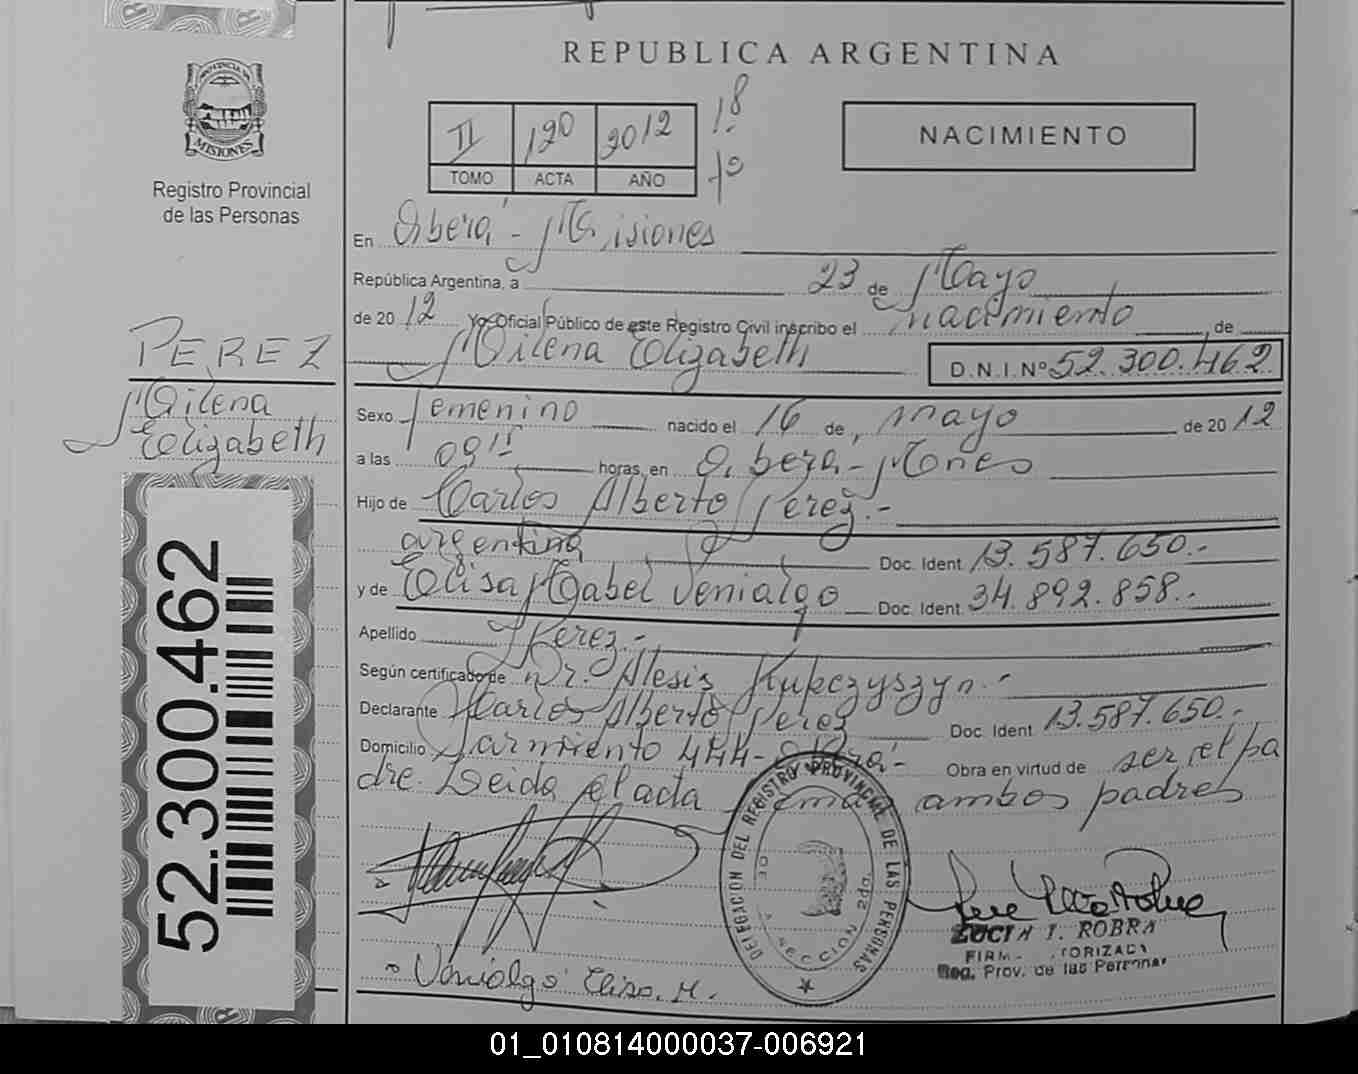 REPUBLICA ARGENTINA
PROVINCIA DE
MISIONES
Registro Provincial
de las Personas
II 120 2012
TOMO ACTA AÑO
NACIMIENTO
En Oberá - Misiones
República Argentina, a 23 de Mayo
de 20 12 Yo Oficial Público de este Registro Civil inscribo el nacimiento de
Milena Elizabeth D.N.I. Nº 52.300.462
PEREZ
Milena
Elizabeth
52.300.462
Sexo femenino nacido el 16 de mayo de 20 12
a las 09 15 horas, en Oberá - Mones
Hijo de Carlos Alberto Perez.-
argentina Doc. Ident. 13.587.650.-
y de Elisa Mabel Venialgo Doc. Ident. 34.892.858.-
Apellido Perez.-
Según certificado de Dr. Alesis Kupczyszyn.-
Declarante Carlos Alberto Perez Doc. Ident. 13.587.650.-
Domicilio Sarmiento 444 - Oberá - Obra en virtud de ser el pa
dre. Leida el acta firman ambos padres
DELEGACION DEL REGISTRO PROVINCIAL DE LAS PERSONAS
SECCION 2da.
Venialgo Elisa. M.
LUCIA I. ROBRA
Reg. Prov. de las Personas
01_010814000037-006921